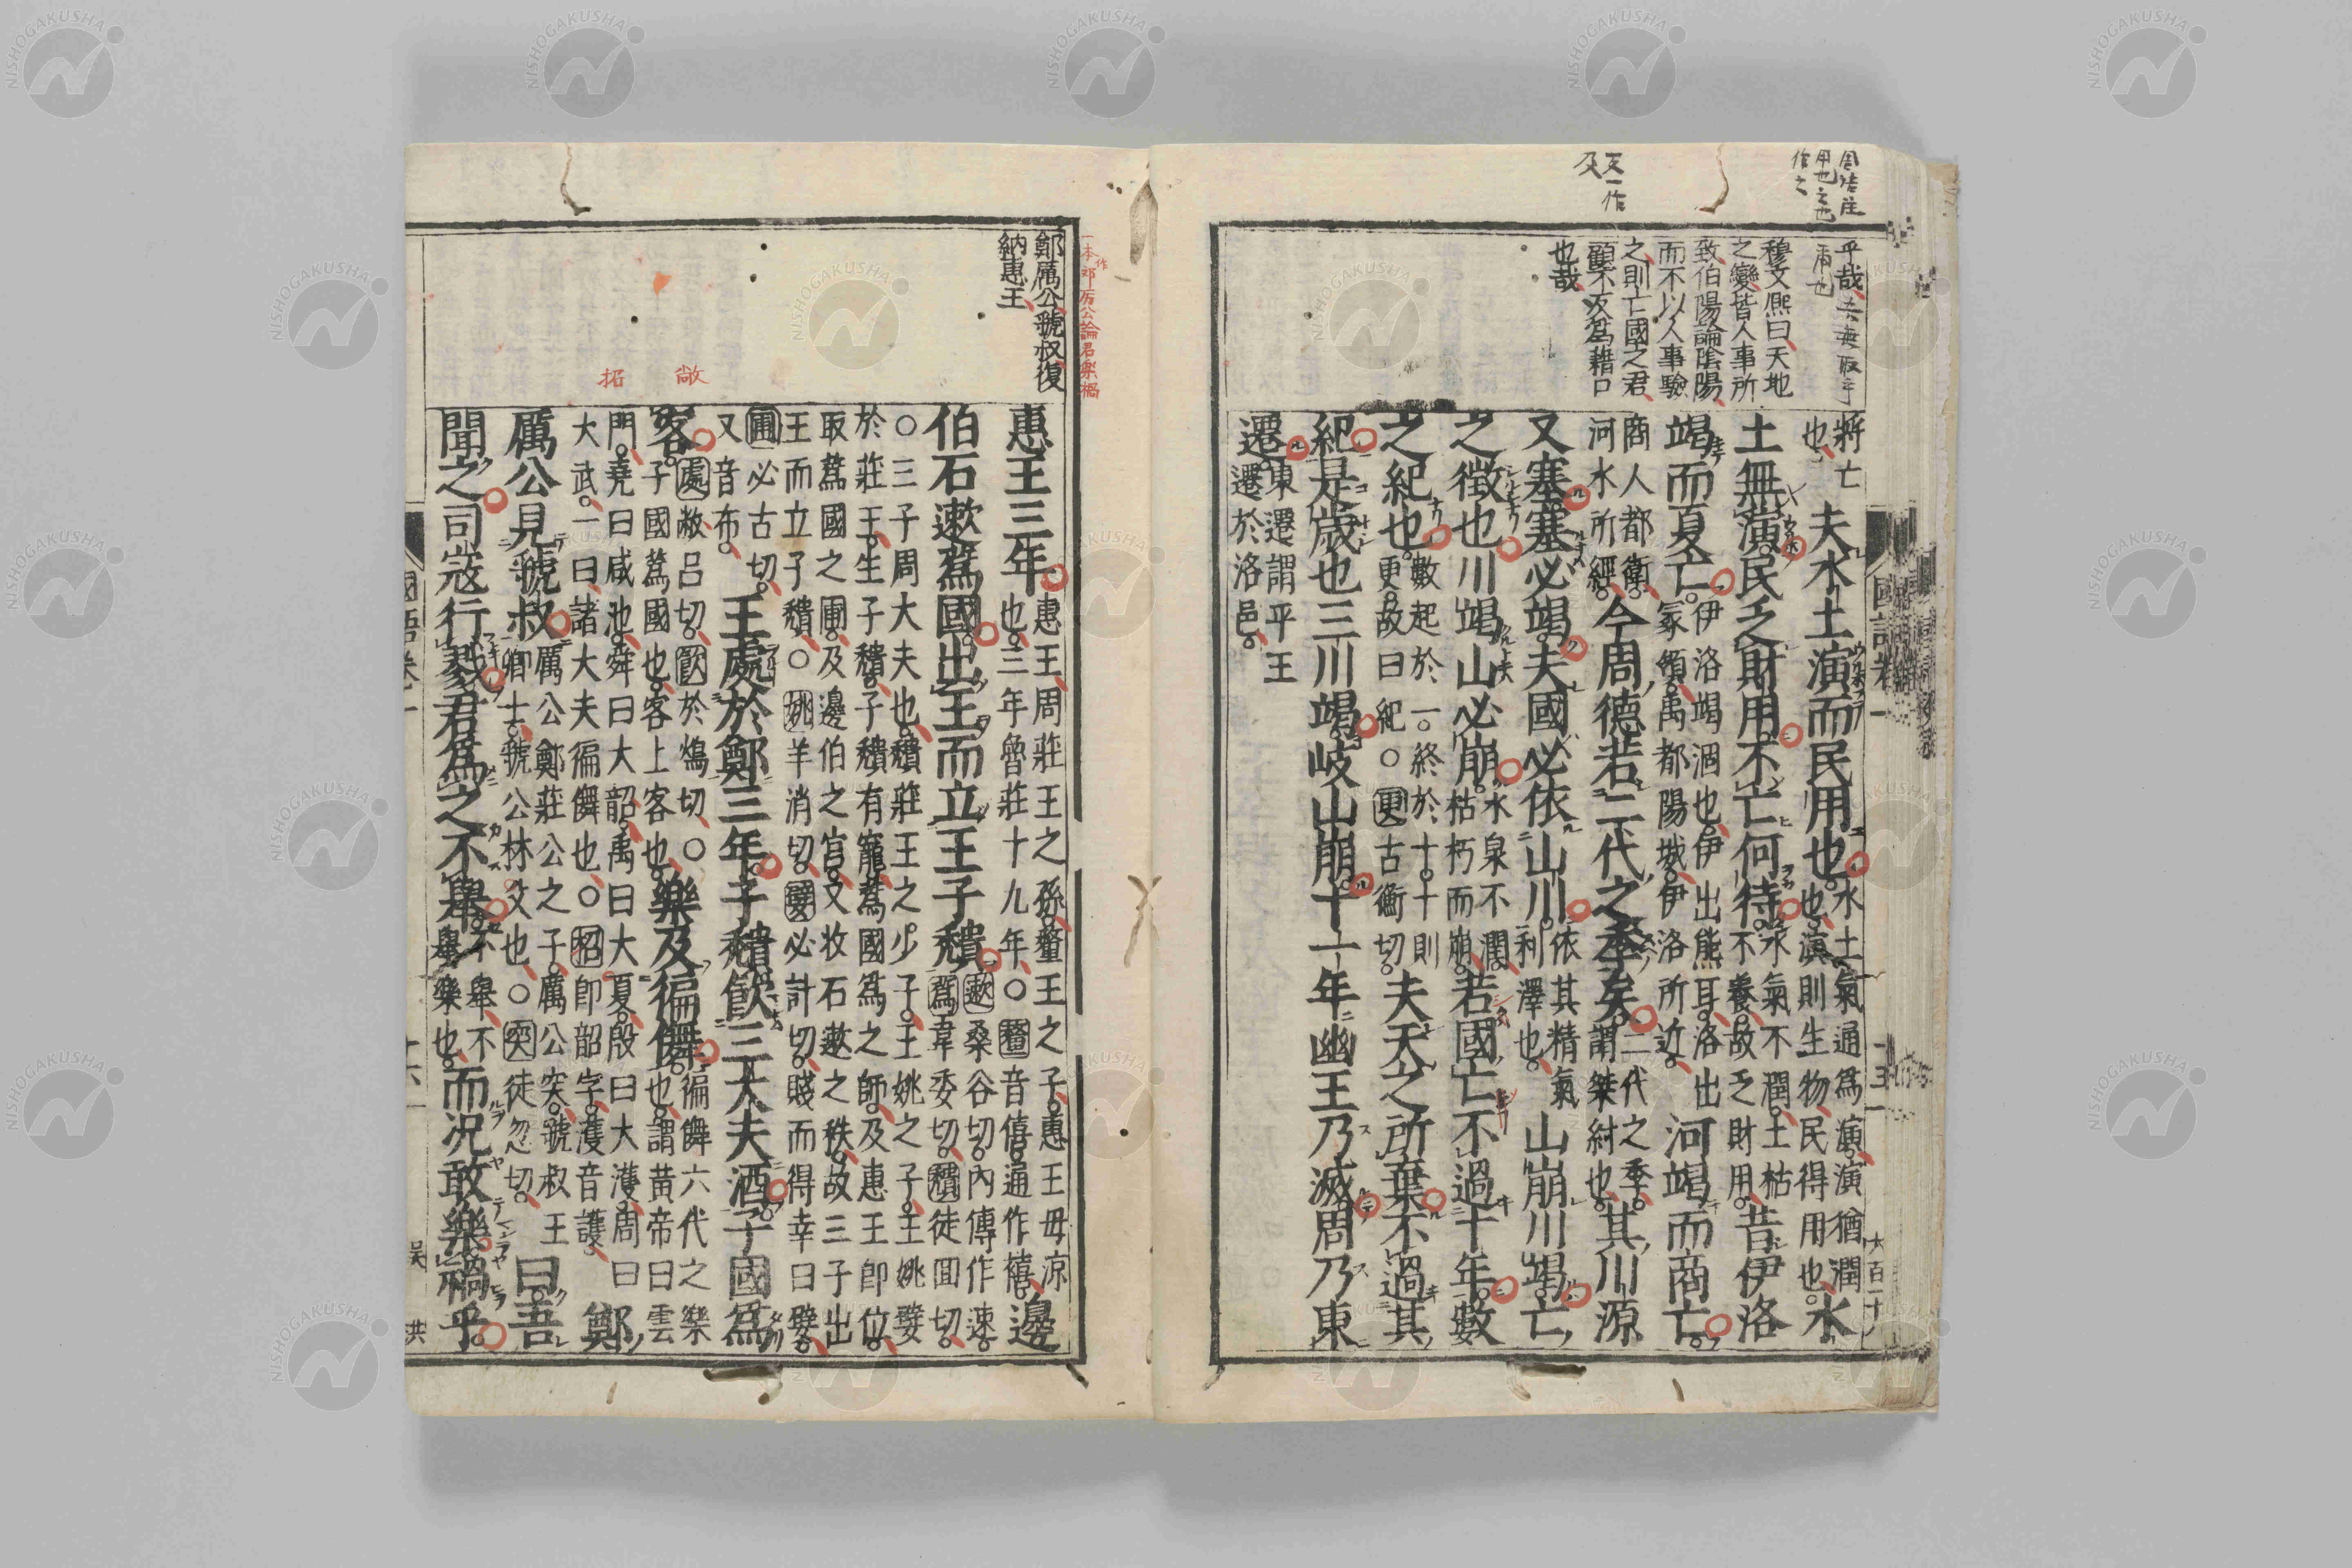 天一作
及
乎哉
穆文熈曰天地
之變皆人事所
致伯陽論陰陽
而不以人事驗
之則亡國之君
顧不反爲藉口
也哉
將亡
也
夫水土演而民用也
水土氣通爲演演猶潤
也演則生物民得用也
水
土無演民乏財用不亡何待
水氣不潤土枯
不養故乏財用
昔伊洛
竭而夏亡
伊洛竭涸也伊出熊耳洛出
冢領禹都陽城伊洛所近
河竭而商亡
商人都衛
河水所經
今周德若二代之季矣
二代之季
謂桀紂也
其川源
又塞塞必竭夫國必依山川
依其精氣
利澤也
山崩川竭亡
之徵也川竭山必崩
水泉不潤
枯朽而崩
若國亡不過十年數
之紀也
數起於一終於十十則
更故曰紀○更古衡切
夫天之所棄不過其
紀是歲也三川竭岐山崩十一年幽王乃滅周乃東
遷
東遷謂平王
遷於洛邑
國語卷一
一本作鄭厉公論君樂禍
鄭厲公虢叔復
納惠王
敞
招
惠王三年
惠王周莊王之孫釐王之子惠王毋涼
也三年魯莊十九年○釐音僖通作禧
邊
伯石遬蔿國出王而立王子穨
遬桑谷切內傳作速
蔿韋委切穨徒回切
○三子周大夫也穨莊王之少子王姚之子王姚嬖
於莊王生子穨子穨有寵蔿國爲之師及惠王卽位
取蔿國之圃及邊伯之宮又收石遬之秩故三子出
王而立子穨○姚羊消切嬖必計切賤而得幸曰嬖
圃必古切
又音布
王處於鄭三年子穨飮三大夫酒子國爲
客
處敞呂切飮於鴆切○
子國蔿國也客上客也
樂及徧儛
徧儛六代之樂
也謂黃帝曰雲
門堯曰咸池舜曰大韶禹曰大夏殷曰大濩周曰
大武一曰諸大夫徧儛也○招卽韶字濩音護
鄭
厲公見虢叔
厲公鄭莊公之子厲公突虢叔王
卿士虢公林父也○突徒忽切
曰吾
聞之司寇行戮君爲之不舉
不舉不
舉樂也
而況敢樂禍乎